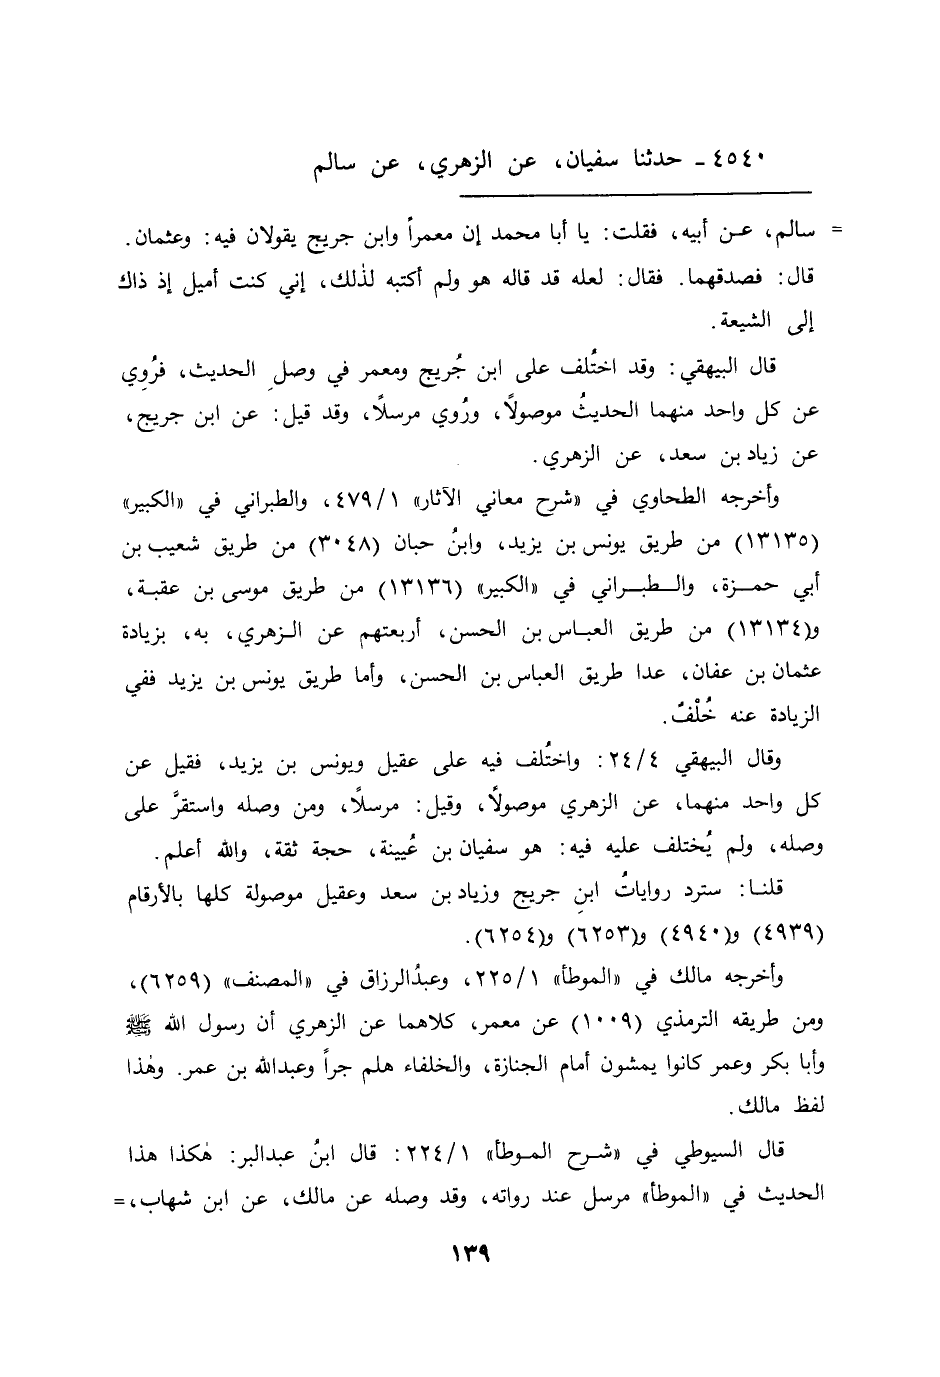 ٤٥٤٠ ـ حدثنا سفيان، عن الزهري، عن سالم
= سالم، عن أبيه، فقلت: يا أبا محمد إن معمراً وابن جريج يقولان فيه: وعثمان.
قال: فصدقهما. فقال: لعله قد قاله هو ولم أكتبه لذٰلك، إني كنت أميل إذ ذاك
إلى الشيعة.
قال البيهقي: وقد اختُلف على ابن جُريج ومعمر في وصلِ الحديث، فرُوِي
عن كل واحد منهما الحديثُ موصولًا، ورُوي مرسلًا، وقد قيل: عن ابن جريج،
عن زياد بن سعد، عن الزهري.
وأخرجه الطحاوي في «شرح معاني الآثار» ٤٧٩/١، والطبراني في «الكبير»
(١٣١٣٥) من طريق يونس بن يزيد، وابنُ حبان (٣٠٤٨) من طريق شعيب بن
أبي حمزة، والطبراني في «الكبير» (١٣١٣٦) من طريق موسى بن عقبة،
و(١٣١٣٤) من طريق العباس بن الحسن، أربعتهم عن الزهري، به، بزيادة
عثمان بن عفان، عدا طريق العباس بن الحسن، وأما طريق يونس بن يزيد ففي
الزيادة عنه خُلْفٌ.
وقال البيهقي ٢٤/٤: واختُلف فيه على عقيل ويونس بن يزيد، فقيل عن
كل واحد منهما، عن الزهري موصولًا، وقيل: مرسلًا، ومن وصله واستقرَّ على
وصله، ولم يُختلف عليه فيه: هو سفيان بن عُيينة، حجة ثقة، والله أعلم.
قلنا: سترد رواياتُ ابنِ جريج وزياد بن سعد وعقيل موصولة كلها بالأرقام
(٤٩٣٩) و(٤٩٤٠) و(٦٢٥٣) و(٦٢٥٤).
وأخرجه مالك في «الموطأ» ٢٢٥/١، وعبدُالرزاق في «المصنف» (٦٢٥٩)،
ومن طريقه الترمذي (١٠٠٩) عن معمر، كلاهما عن الزهري أن رسول الله ﷺ
وأبا بكر وعمر كانوا يمشون أمام الجنازة، والخلفاء هلم جراً وعبدالله بن عمر. وهٰذا
لفظ مالك.
قال السيوطي في «شرح الموطأ» ٢٢٤/١: قال ابنُ عبدالبر: هٰكذا هذا
الحديث في «الموطأ» مرسل عند رواته، وقد وصله عن مالك، عن ابن شهاب، =
١٣٩